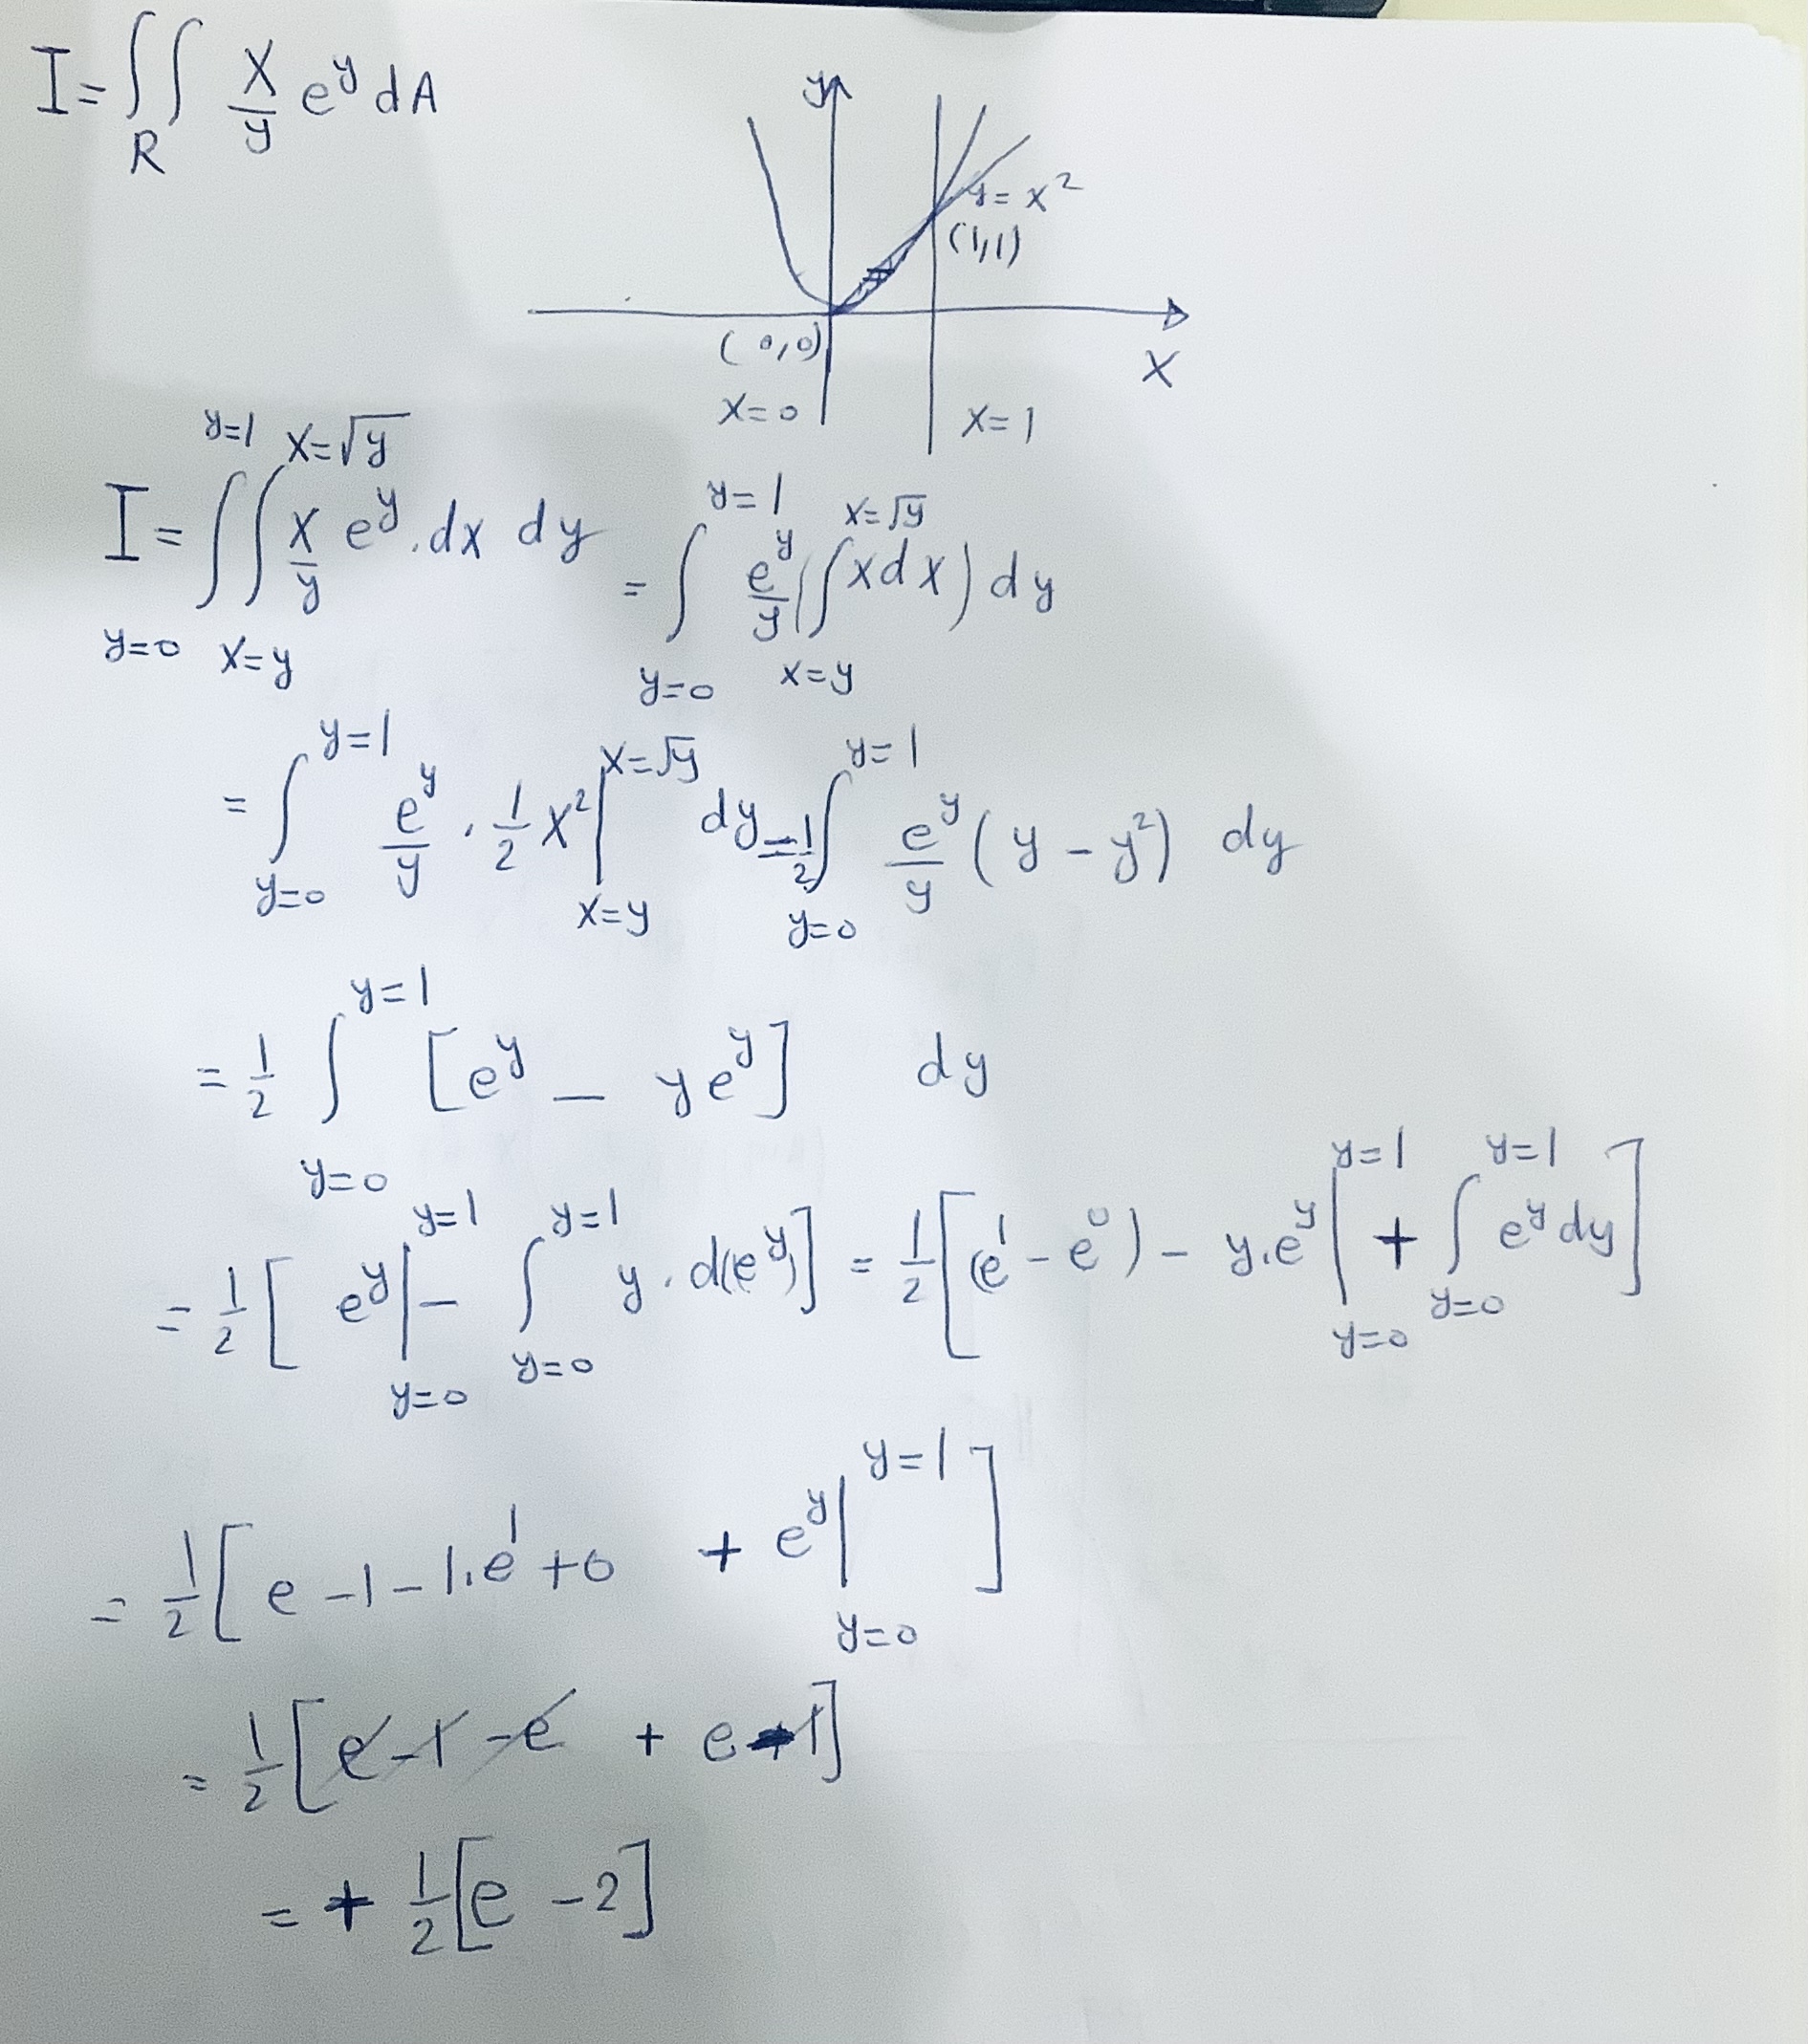 I = ∫∫_R x/y e^y dA
y
y = x²
(1,1)
(0,0)
x
x=0
x=1
I = ∫_{y=0}^{y=1} ∫_{x=y}^{x=√y} x/y e^y . dx dy = ∫_{y=0}^{y=1} e^y/y (∫_{x=y}^{x=√y} x dx) dy
= ∫_{y=0}^{y=1} e^y/y . 1/2 x² |_{x=y}^{x=√y} dy = 1/2 ∫_{y=0}^{y=1} e^y/y (y - y²) dy
= 1/2 ∫_{y=0}^{y=1} [e^y - y e^y] dy
= 1/2 [ e^y |_{y=0}^{y=1} - ∫_{y=0}^{y=1} y . d(e^y) ] = 1/2 [ (e^1 - e^0) - y.e^y |_{y=0}^{y=1} + ∫_{y=0}^{y=1} e^y dy ]
= 1/2 [ e - 1 - 1.e^1 + 0 + e^y |_{y=0}^{y=1} ]
= 1/2 [ e - 1 - e + e - 1 ]
= + 1/2 [ e - 2 ]